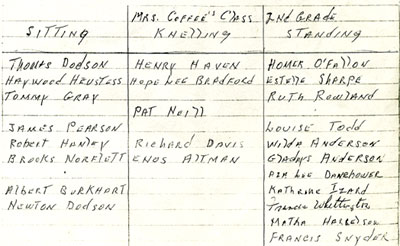 MRS. COFFEE'S CLASS 2ND GRADE
SITTING KNELLING STANDING
THOMAS DODSON HENRY HAVEN HOMER O'FALLON
HAYWOOD HRUSTESS HOPE LEE BRADFORD ESTELLE SHARPE
TOMMY GRAY RUTH ROWLAND
PAT NOLLL
JAMES PEARSON LOUISE TODD
ROBERT HANLEY RICHARD DAVIS WILDA ANDERSON
BROOKS NORFLETT ENOS ALTMAN GLADYS ANDERSON
LEE DANEHOWER
ALBERT BURKHART KATHRINE IZARD
NEWTON DODSON Whittington
HARRELSON
FRANCIS SNYDER